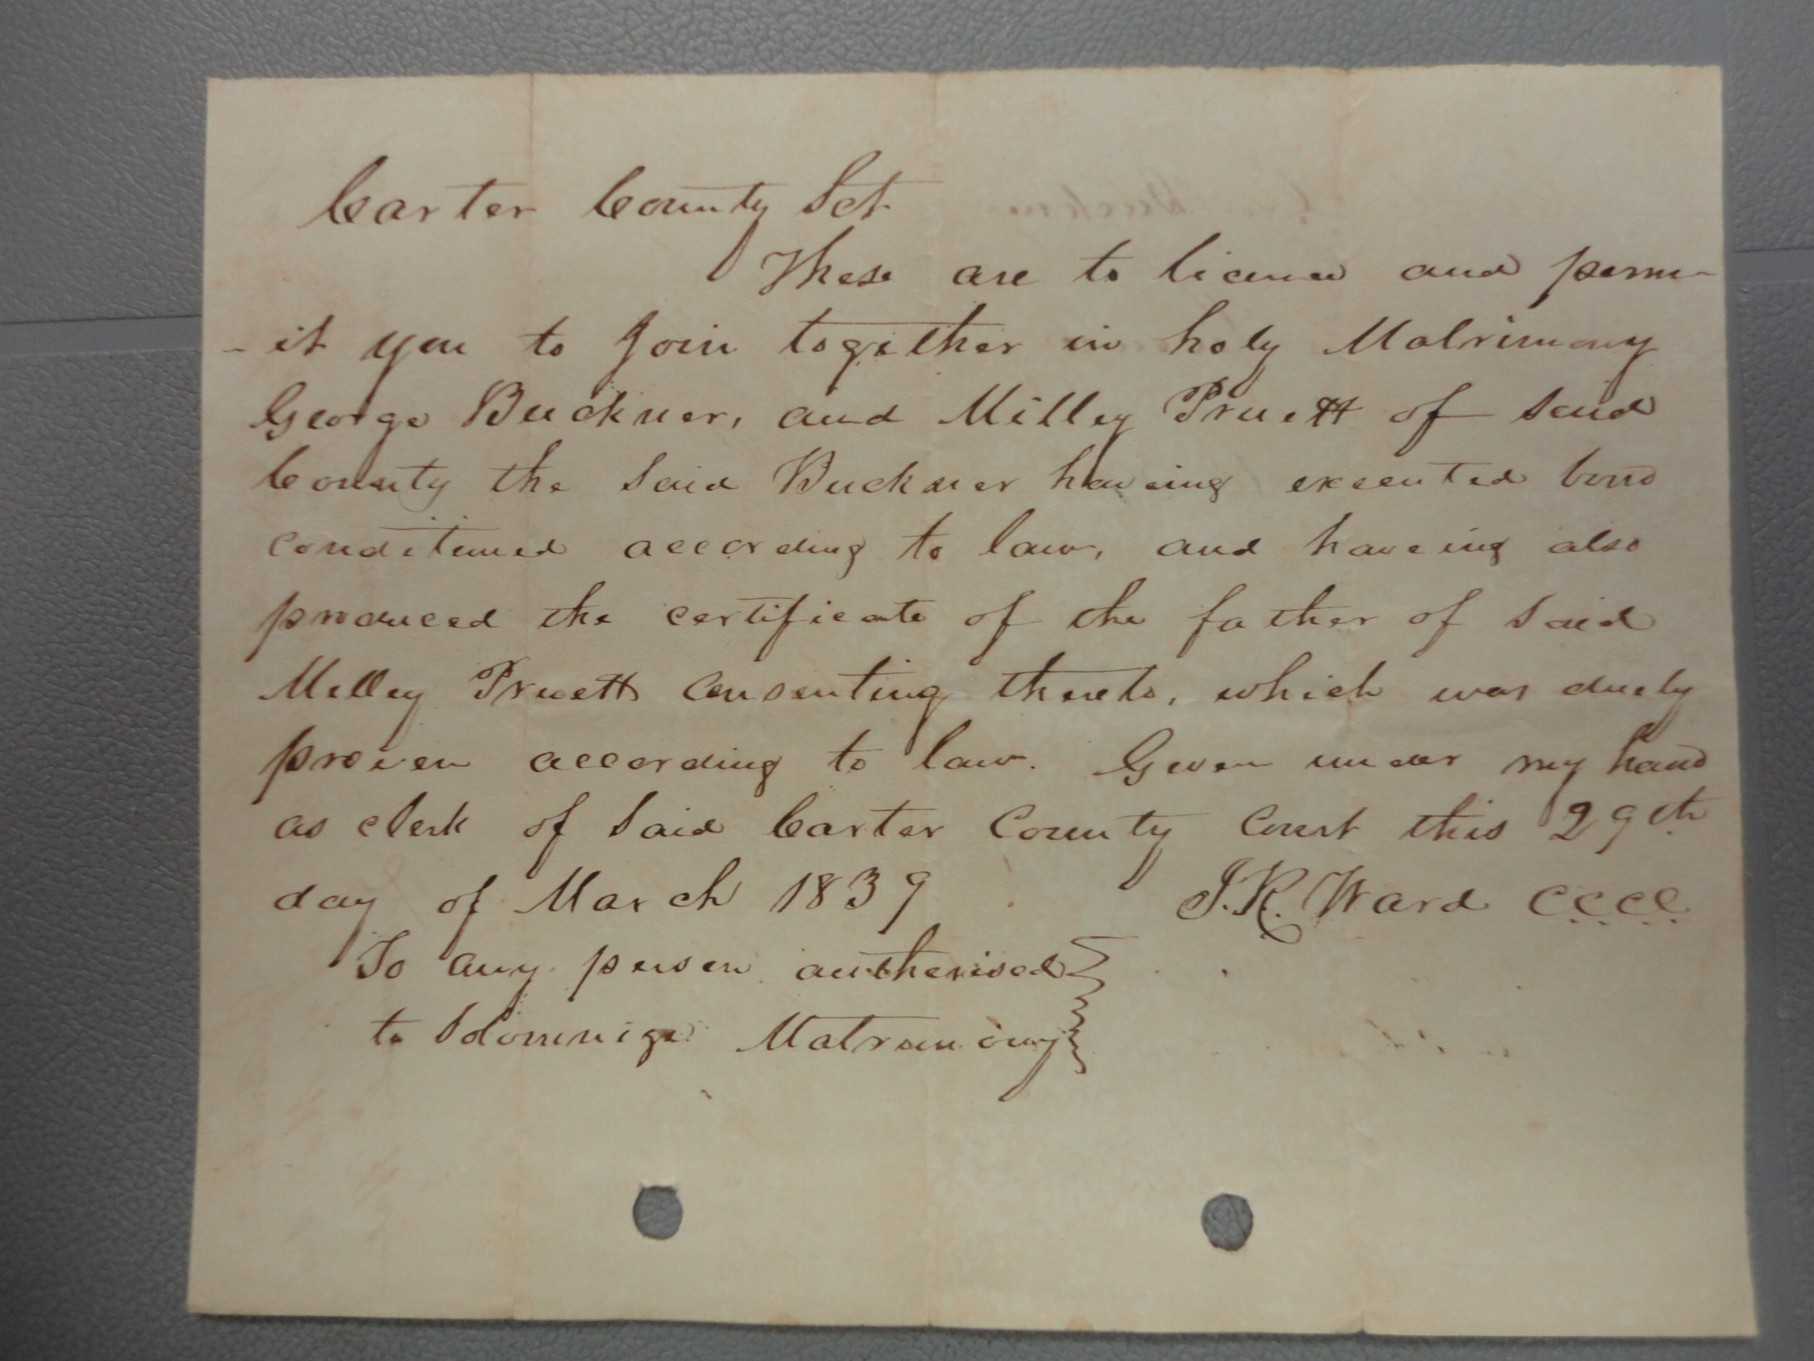 Carter County Sct
These are to licence and perm-
-it you to Join together in holy Matrimony
George Buckner, and Milley Pruett of said
County the said Buckner haveing executed bond
conditioned according to law, and haveing also
produced the certificate of the father of said
Milley Pruett consenting thereto, which was duely
proven according to law. Given under my hand
as clerk of said Carter County Court this 29th
day of March 1839 J. R. Ward C.C.C.C.
To any person authorised
to Solomnize Matrimony